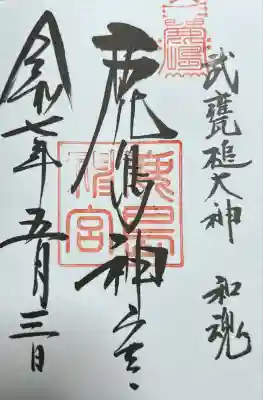 武甕槌大神　和魂
鹿島神宮
鹿島
神宮
令和七年五月三日